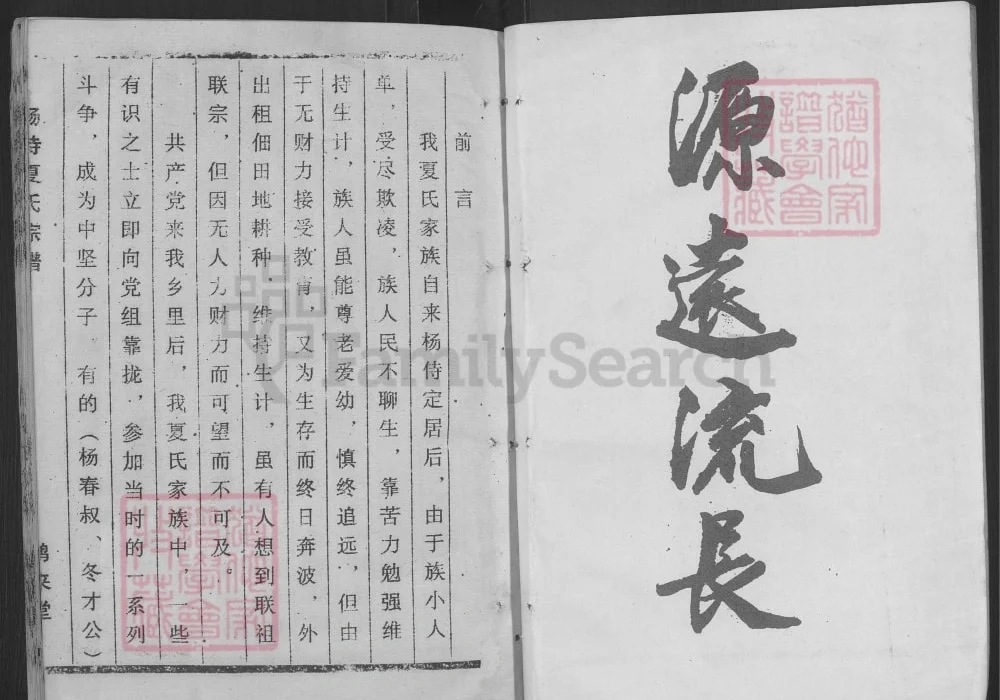 源遠流長
前言
我夏氏家族自来杨侍定居后，由于族小人
单，受尽欺凌，族人民不聊生，靠苦力勉强维
持生计，族人虽能尊老爱幼，慎终追远，但由
于无财力接受教育，又为生存而终日奔波，外
出租佃田地耕种，维持生计，虽有人想到联祖
联宗，但因无人力财力而可望而不可及。
共产党来我乡里后，我夏氏家族中，一些
有识之士立即向党组靠拢，参加当时的一系列
斗争，成为中坚分子。有的（杨春叔、冬才公）
杨侍夏氏宗谱
FamilySearch